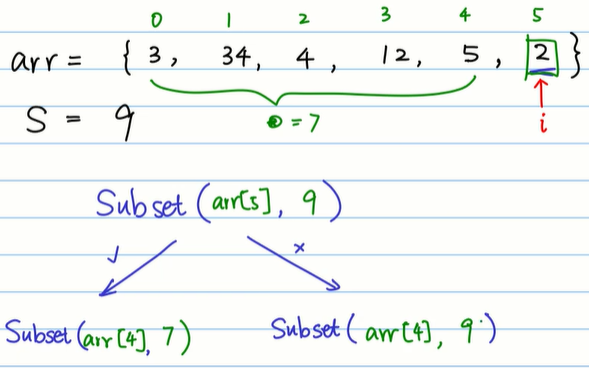 0 1 2 3 4 5
arr = { 3, 34, 4, 12, 5, 2 }
S = 9 = 7 i
Subset (arr[5], 9)
✓ ×
Subset (arr[4], 7) Subset ( arr[4], 9 )